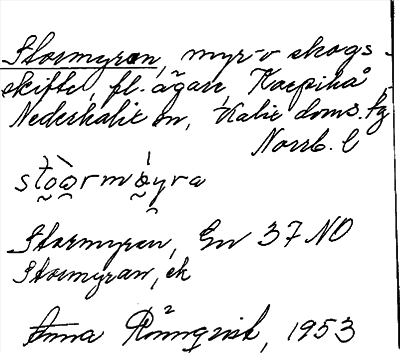 Stormyran, myr- o skogs-
skifte, fl. ägare, Korpikå
Nederkalix sn, Kalix doms. tg
Norrb. l
Stormyran, Gw 37 NO
Stormyran, ek
Anna Rönnqvist, 1953